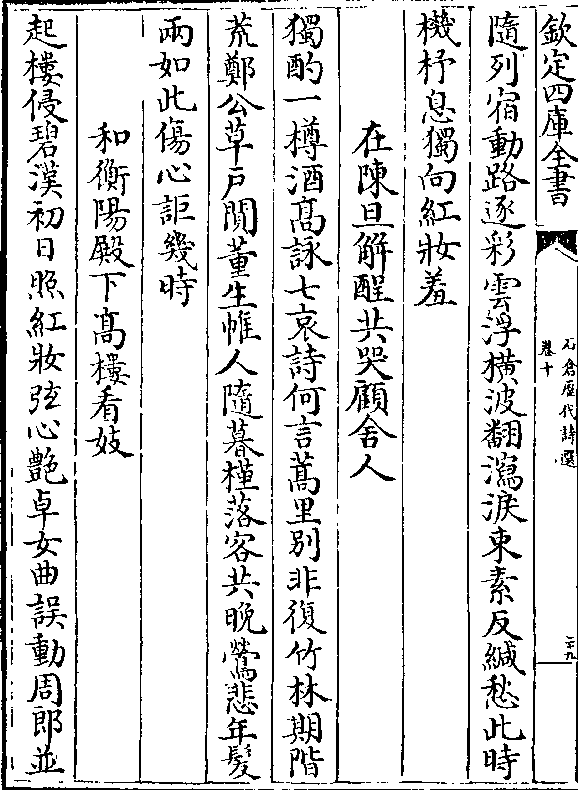 欽定四庫全書
石倉歷代詩選
卷十
二十九
隨列宿動路逐彩雲浮橫波翻瀉淚束素反緘愁此時
機杼息獨向紅妝羞
在陳旦解酲共哭顧舍人
獨酌一樽酒高詠七哀詩何言蒿里別非復竹林期階
荒鄭公草戶闃董生帷人隨暮槿落客共晚鶯悲年髮
兩如此傷心詎幾時
和衡陽殿下高樓看妓
起樓侵碧漢初日照紅妝弦心艷卓女曲誤動周郎並